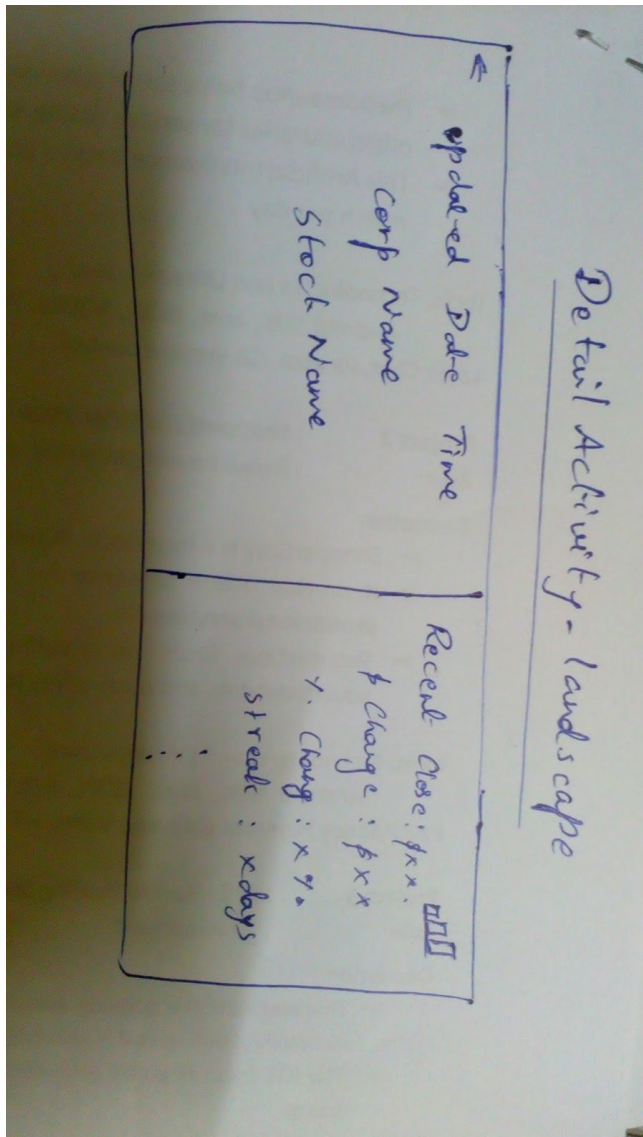 Detail Activity - landscape
← updated Date Time
Corp Name
Stock Name
Recent Close: $xx.
$ Change : $xx
% Chang : x%
streak : xdays